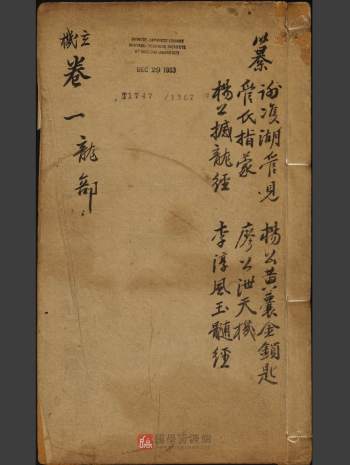 纂
謝双湖管見 楊公黃囊金鎖匙
管氏指蒙 廖公泄天機
楊公撼龍經 李淳風玉髓經
玄機
卷一 龍部
CHINESE-JAPANESE LIBRARY
HARVARD-YENCHING INSTITUTE
AT HARVARD UNIVERSITY
DEC 29 1953
T1747 /1367
國學資源網